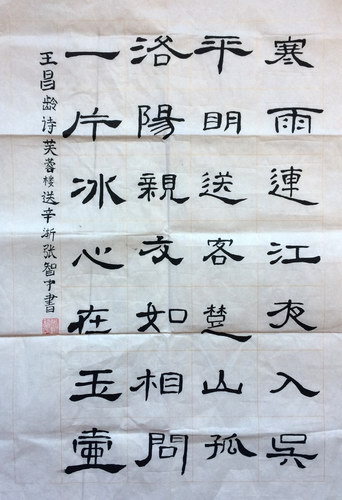 寒雨連江夜入吳
平明送客楚山孤
洛陽親友如相問
一片冰心在玉壷
王昌龄诗芙蓉楼送辛渐张智中書